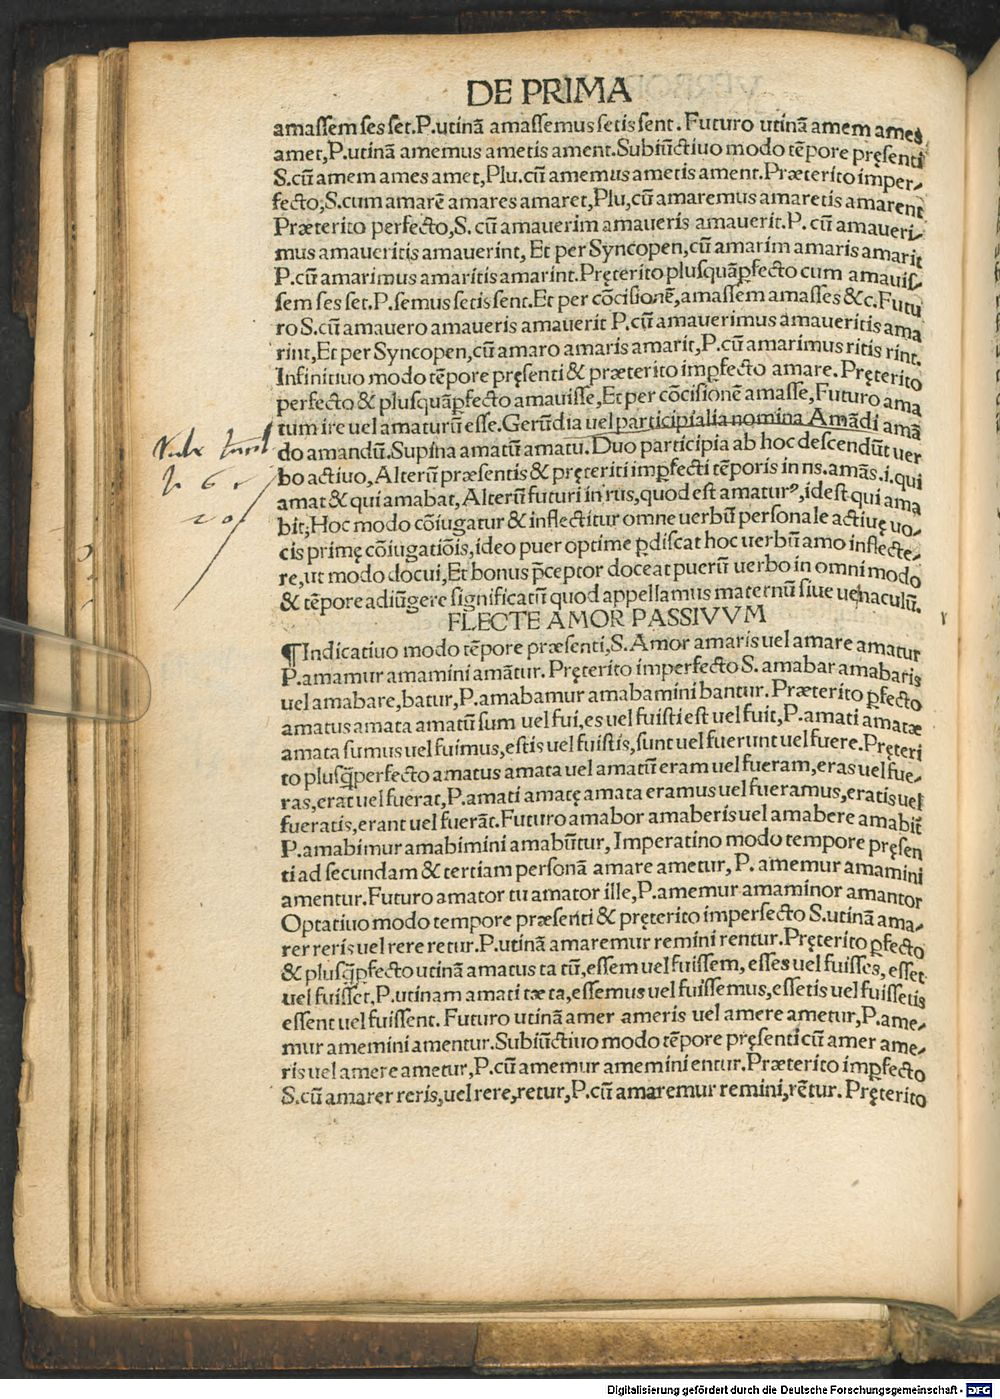 DE PRIMA
amassem ses set.P.utinā amassemus setis sent. Futuro utinā amem ames
amet,P.utinā amemus ametis ament.Subiūctiuo modo tēpore pręsenti
S.cū amem ames amet,Plu.cū amemus ametis ament.Præterito imper⸗
fecto;S.cum amarē amares amaret,Plu,cū amaremus amaretis amarent
Præterito perfecto,S. cū amauerim amaueris amauerit.P. cū amaueri⸗
mus amaueritis amauerint, Et per Syncopen,cū amarim amaris amarit
P.cū amarimus amaritis amarint.Pręterito plusquāp̱fecto cum amauis⸗
sem ses set.P.semus setis sent.Et per cōcisionē,amassem amasses &c.Futu
ro S.cū amauero amaueris amauerit P.cū amauerimus amaueritis ama
rint,Et per Syncopen,cū amaro amaris amarit,P.cū amarimus ritis rint.
Infinitiuo modo tēpore pręsenti & præterito imp̱fecto amare. Pręterito
perfecto & plusquāp̱fecto amauisse,Et per cōcisionē amasse,Futuro ama
tum ire uel amaturū esse.Gerūdia uel participialia nomina Amādi amā
do amandū.Supina amatū amatu.Duo participia ab hoc descendūt uer
bo actiuo,Alterū præsentis & pręteriti imp̱fecti tēporis in ns.amās.i.qui
amat & qui amabat,Alterū futuri in rus,quod est amaturꝰ,idest qui ama
bit;Hoc modo cōiugatur & inflectitur omne uerbū personale actiuę uo⸗
cis primę cōiugatiōis,ideo puer optime p̱discat hoc uerbū amo inflecte⸗
re,ut modo docui,Et bonus p̄ceptor doceat puerū uerbo in omni modo
& tēpore adiūgere significatū quod appellamus maternū siue uernaculū.
FLECTE AMOR PASSIVVM
¶Indicatiuo modo tēpore præsenti,S.Amor amaris uel amare amatur
P.amamur amamini amātur. Pręterito imperfecto S. amabar amabaris
uel amabare,batur,P.amabamur amabamini bantur. Præterito p̱fecto
amatus amata amatū sum uel fui,es uel fuisti est uel fuit,P.amati amatæ
amata sumus uel fuimus,estis uel fuistis,sunt uel fuerunt uel fuere.Pręteri
to plusq̄perfecto amatus amata uel amatū eram uel fueram,eras uel fue⸗
ras,erat uel fuerat,P.amati amatę amata eramus uel fueramus,eratis uel
fueratis,erant uel fuerāt.Futuro amabor amaberis uel amabere amabit̄
P.amabimur amabimini amabūtur, Imperatino modo tempore pręsen
ti ad secundam & tertiam personā amare ametur, P. amemur amamini
amentur.Futuro amator tu amator ille,P.amemur amaminor amantor
Optatiuo modo tempore præsenti & pręterito imperfecto S.utinā ama⸗
rer reris uel rere retur.P.utinā amaremur remini rentur.Pręterito p̱fecto
& plusq̄p̱fecto utinā amatus ta tū,essem uel fuissem, esses uel fuisses, esset
uel fuisset,P.utinam amati tæ ta,essemus uel fuissemus,essetis uel fuissetis
essent uel fuissent. Futuro utinā amer ameris uel amere ametur,P.ame⸗
mur amemini amentur.Subiūctiuo modo tēpore pręsenti cū amer ame⸗
ris uel amere ametur,P.cū amemur amemini entur.Præterito imp̱fecto
S.cū amarer reris,uel rere,retur,P.cū amaremur remini,rētur. Pręterito
Digitalisierung gefördert durch die Deutsche Forschungsgemeinschaft - DFG